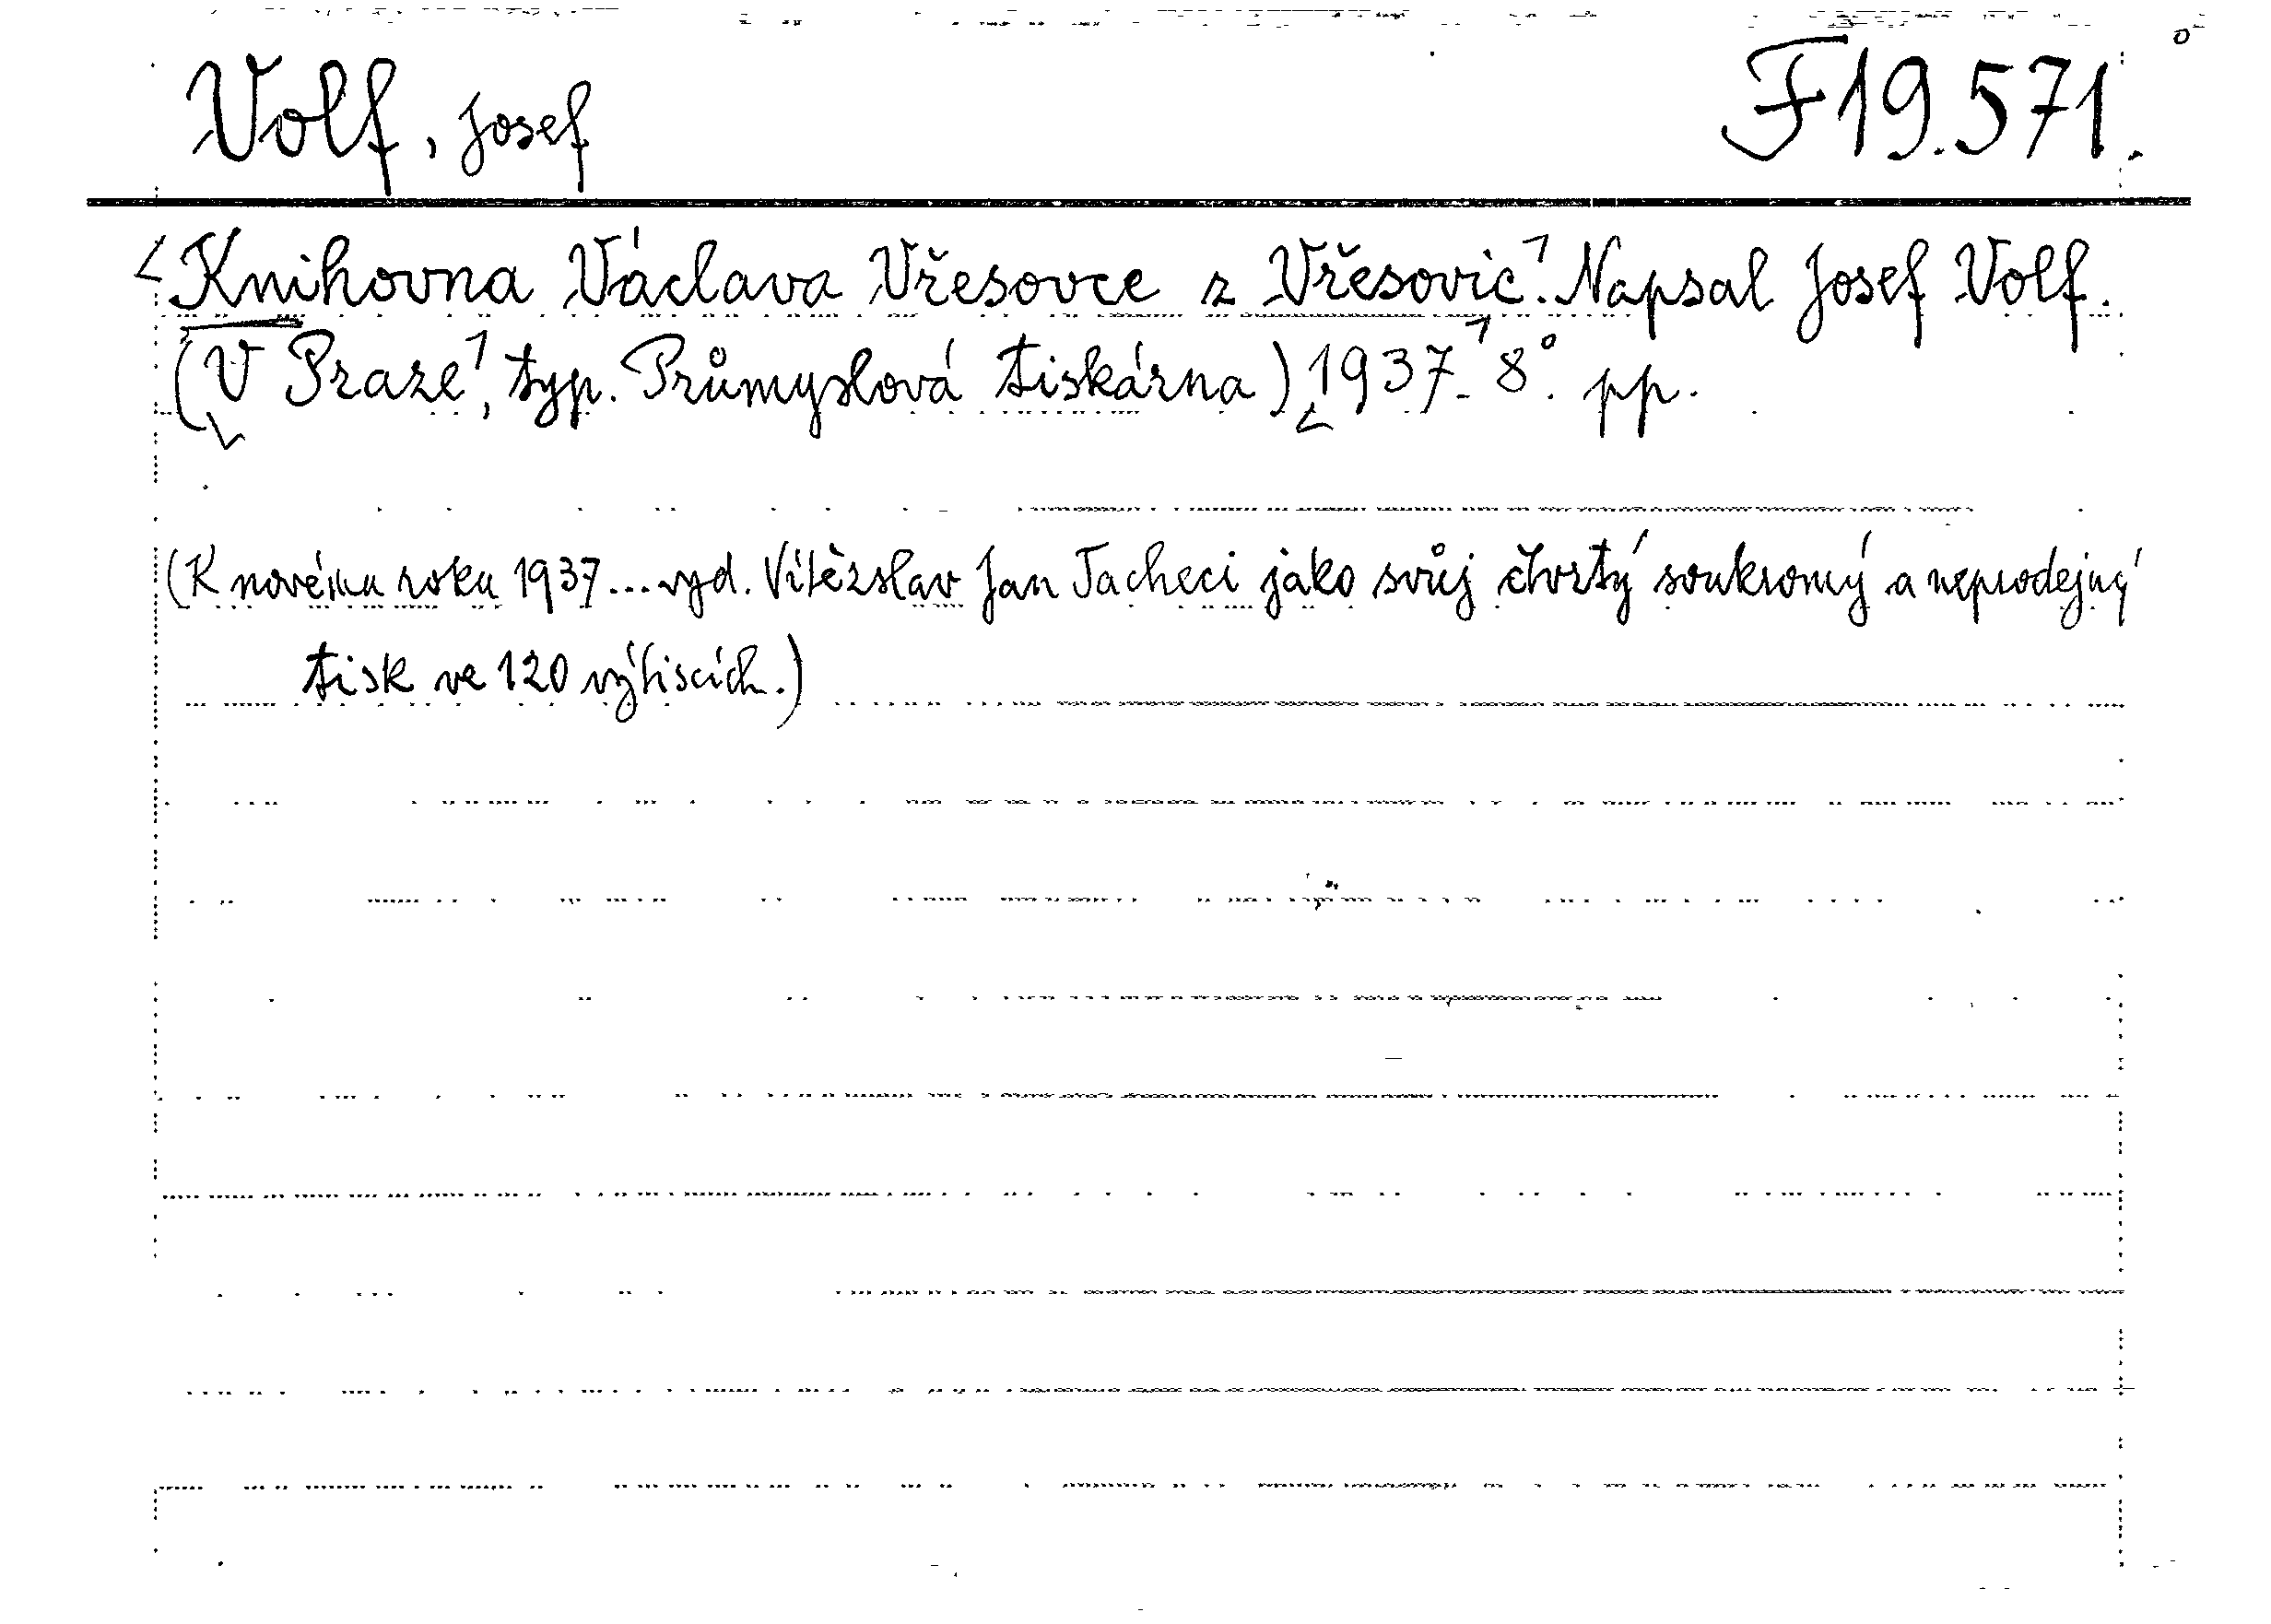 Volf, Josef F19.571.
Knihovna Václava Vřesovce z Vřesovic. Napsal Josef Volf.
(V Praze, typ. Průmyslová tiskárna) 1937. 8°. pp.
(K novému roku 1937... vyd. Vítězslav Jan Tacheci jako svůj čtvrtý soukromý a neprodejný
tisk ve 120 výtiscích.)